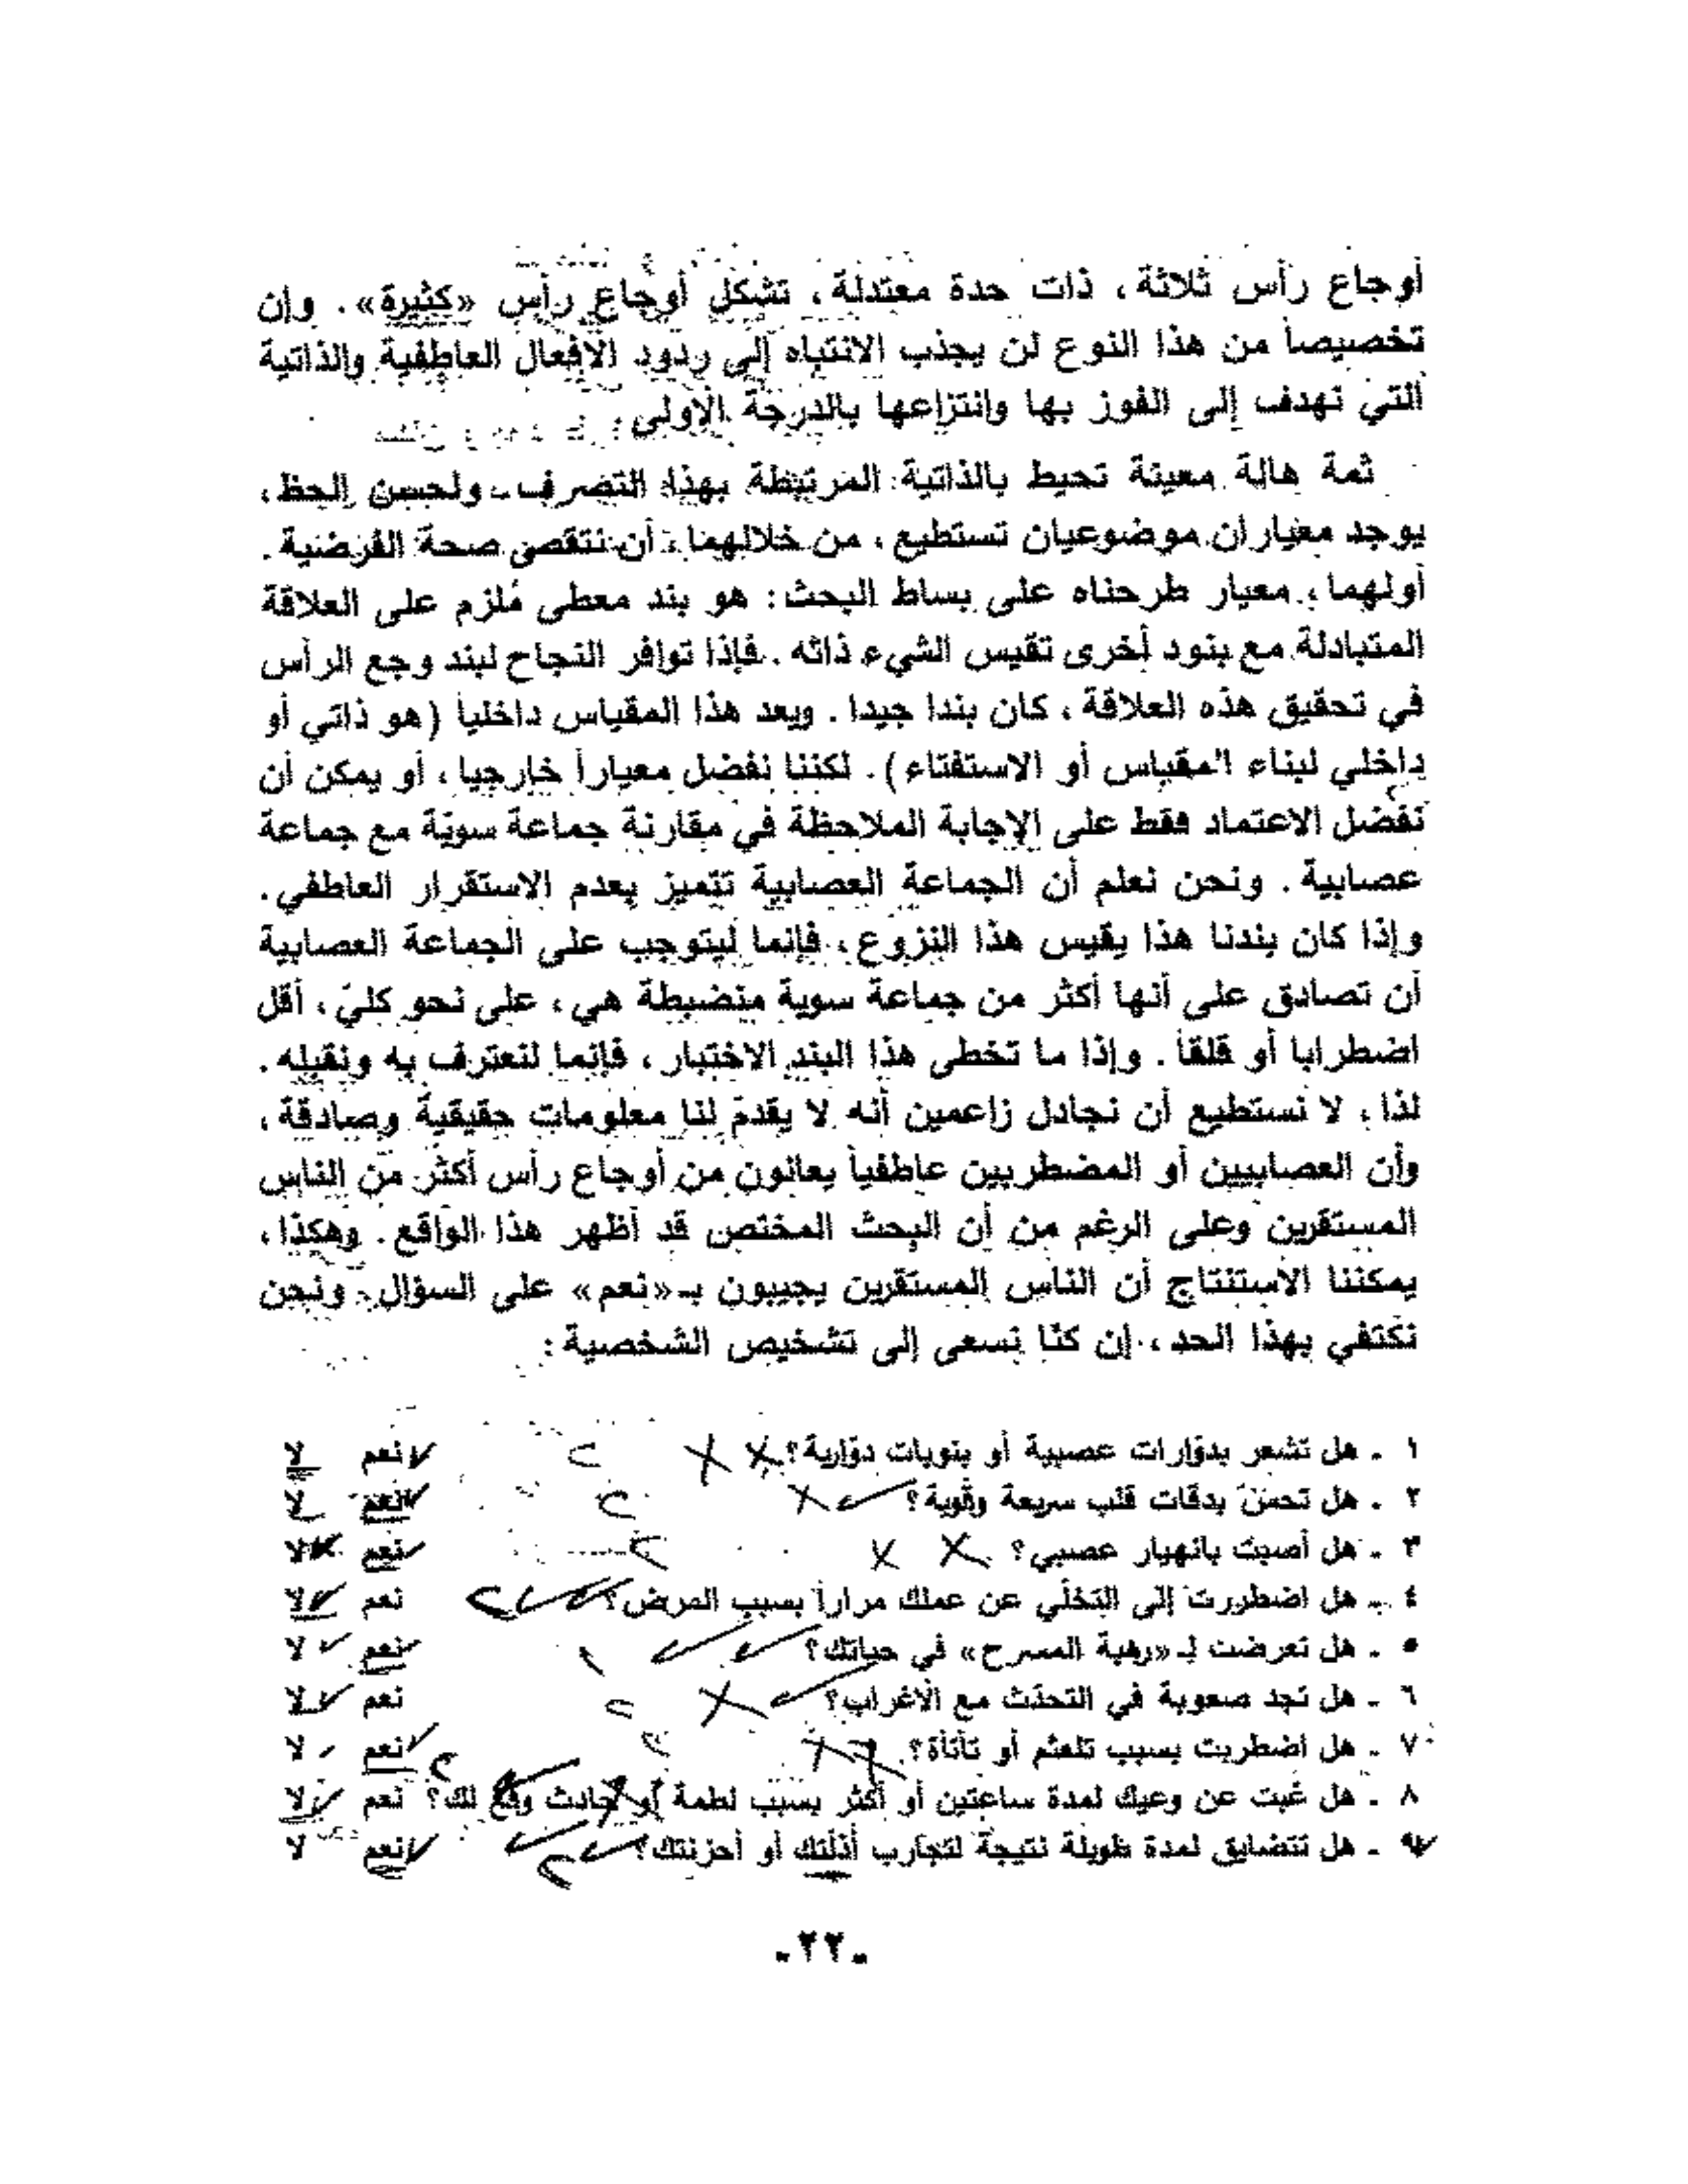 أوجاع رأس ثلاثة، ذات حدة معتدلة، تشكل أوجاع رأس «كثيرة». وإن
تخصيصاً من هذا النوع لن يجذب الانتباه إلى ردود الأفعال العاطفية والذاتية
التي تهدف إلى الفوز بها وانتزاعها بالدرجة الأولى.
ثمة هالة معينة تحيط بالذاتية المرتبطة بهذا التصرف. ولحسن الحظ،
يوجد معياران موضوعيان نستطيع، من خلالهما، أن نتقصى صحة الفرضية.
أولهما، معيار طرحناه على بساط البحث: هو بند معطى مُلزم على العلاقة
المتبادلة مع بنود أخرى تقيس الشيء ذاته. فإذا توافر النجاح لبند وجع الرأس
في تحقيق هذه العلاقة، كان بندا جيدا. ويعد هذا المقياس داخلياً (هو ذاتي أو
داخلي لبناء المقياس أو الاستفتاء). لكننا نفضل معياراً خارجيا، أو يمكن أن
نفضل الاعتماد فقط على الإجابة الملاحظة في مقارنة جماعة سويّة مع جماعة
عصابية. ونحن نعلم أن الجماعة العصابية تتميز بعدم الاستقرار العاطفي.
وإذا كان بندنا هذا يقيس هذا النزوع، فإنما ليتوجب على الجماعة العصابية
أن تصادق على أنها أكثر من جماعة سوية منضبطة هي، على نحو كليّ، أقل
اضطرابا أو قلقاً. وإذا ما تخطى هذا البند الاختبار، فإنما لنعترف به ونقبله.
لذا، لا نستطيع أن نجادل زاعمين أنه لا يقدمّ لنا معلومات حقيقية وصادقة،
وأن العصابيين أو المضطربين عاطفياً يعانون من أوجاع رأس أكثر من الناس
المستقرين وعلى الرغم من أن البحث المختص قد أظهر هذا الواقع. وهكذا،
يمكننا الاستنتاج أن الناس المستقرين يجيبون بـ«نعم» على السؤال. ونحن
نكتفي بهذا الحد، إن كنّا نسعى إلى تشخيص الشخصية:
١ - هل تشعر بدوّارات عصبية أو بنوبات دوّارية؟ نعم لا
٢ - هل تحسّ بدقات قلب سريعة وقوية؟ نعم لا
٣ - هل أصبت بانهيار عصبي؟ نعم لا
٤ - هل اضطررت إلى التخلّي عن عملك مراراً بسبب المرض؟ نعم لا
٥ - هل تعرضت لـ«رهبة المسرح» في حياتك؟ نعم لا
٦ - هل تجد صعوبة في التحدّث مع الأغراب؟ نعم لا
٧ - هل اضطربت بسبب تلعثم أو تأتأة؟ نعم لا
٨ - هل غبت عن وعيك لمدة ساعتين أو أكثر بسبب لطمة أو حادث وقع لك؟ نعم لا
٩ - هل تتضايق لمدة طويلة نتيجة لتجارب أذلّتك أو أحزنتك؟ نعم لا
-٢٢-